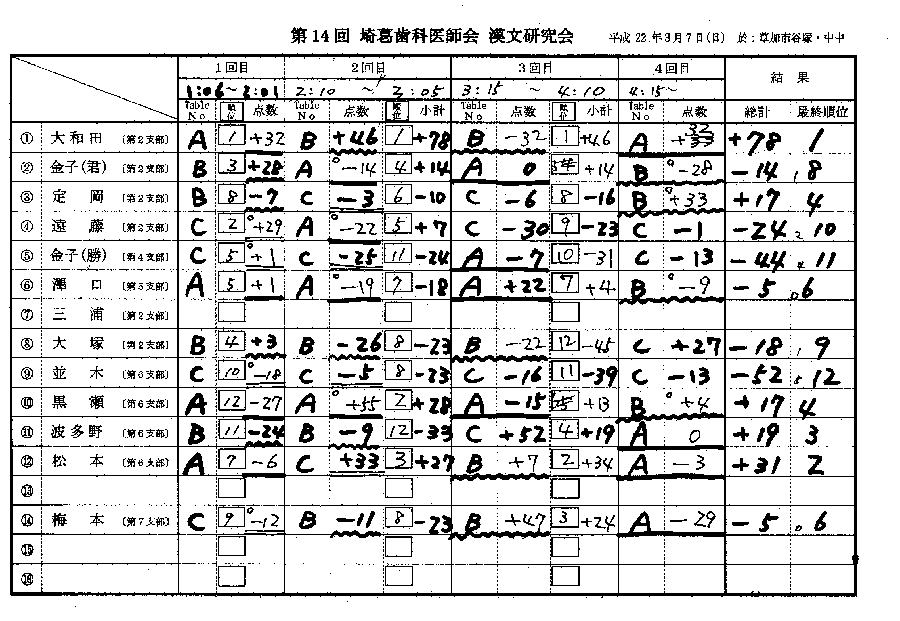 第14回 埼葛歯科医師会 漢文研究会 平成22年3月7日(日) 於:草加市谷塚・中中
1回目 2回目 3回目 4回目 結果
1:06~2:01 2:10 ~ 3:05 3:15 ~ 4:10 4:15~
Table No 順位 点数 Table No 点数 順位 小計 Table No 点数 順位 小計 Table No 点数 総計 最終順位
① 大和田 (第2支部) A 1 +32 B +46 1 +78 B -32 1 +46 A +32 +78 1
② 金子(君) (第2支部) B 3 +28 A -14 4 +14 A 0 +14 B -28 -14 8
③ 定岡 (第2支部) B 8 -7 C -3 6 -10 C -6 8 -16 B +33 +17 4
④ 遠藤 (第2支部) C 2 +29 A -22 5 +7 C -30 9 -23 C -1 -24 10
⑤ 金子(勝) (第4支部) C 5 +1 C -25 11 -24 A -7 10 -31 C -13 -44 11
⑥ 瀬口 (第5支部) A 5 +1 A -19 7 -18 A +22 7 +4 B -9 -5 6
⑦ 三浦 (第2支部)
⑧ 大塚 (第2支部) B 4 +3 B -26 8 -23 B -22 12 -45 C +27 -18 9
⑨ 並木 (第6支部) C 10 -18 C -5 8 -23 C -16 11 -39 C -13 -52 12
⑩ 黒瀬 (第6支部) A 12 -27 A +55 2 +28 A -15 +13 B +4 +17 4
⑪ 波多野 (第6支部) B 11 -24 B -9 12 -33 C +52 4 +19 A 0 +19 3
⑫ 松本 (第6支部) A 7 -6 C +33 3 +27 B +7 2 +34 A -3 +31 2
⑬
⑭ 梅本 (第7支部) C 9 -12 B -11 8 -23 B +47 3 +24 A -29 -5 6
⑮
⑯